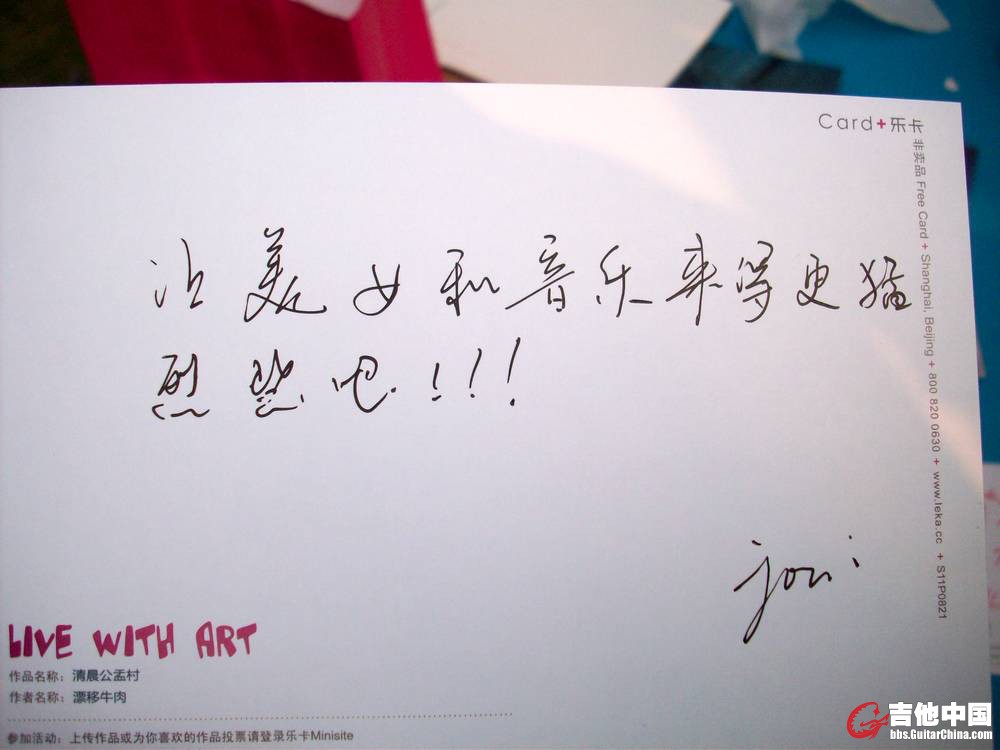 Card+乐卡
非卖品 Free Card + Shanghai, Beijing + 800 820 0630 + www.leka.cc + S11P0821
让美女和音乐来得更猛
烈些吧!!!
joni
LIVE WITH ART
作品名称：清晨公孟村
作者名称：漂移牛肉
参加活动：上传作品或为你喜欢的作品投票请登录乐卡Minisite
吉他中国
bbs.GuitarChina.com